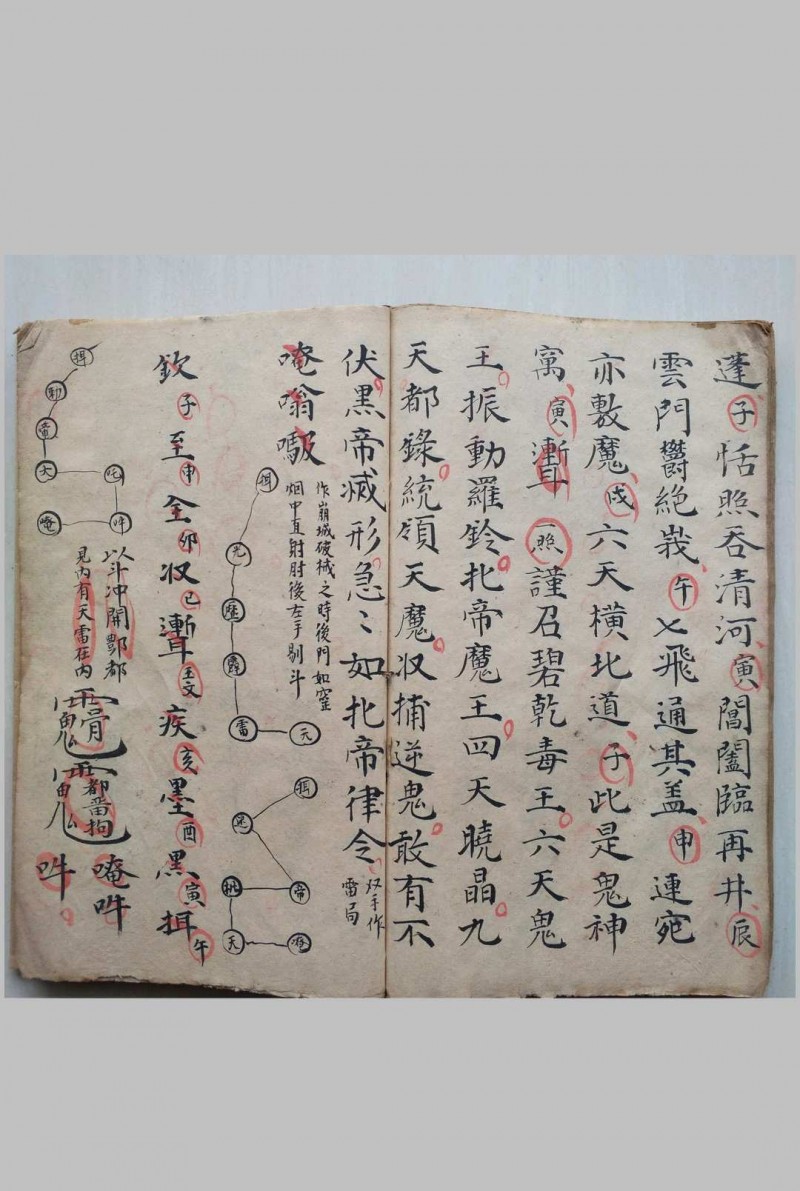 蓬子恬照吞清河寅閶闔臨再井辰
雲門欝絶㦲午七飛通其盖申連宛
亦敷魔戌六天橫北道子此是鬼神
寓寅魙一照謹召碧乾毒王六天鬼
王振動羅鈴北帝魔王四天曉晶九
天都錄統領天魔収捕逆鬼敢有不
伏黑帝減形急〻如北帝律令双手作雷局
唵嗡㘈
作崩城破械之時後門如窑
烟中直射肘後左手剔斗
揖
魔
霹
雷
元
揖
帝
天
唵
欽子至申全卯収巳魙玉文疾亥墨酉黑寅揖午
揖
帝
大
吽
唵
以斗冲開酆都
見內有天雷在內
唵吽
吽